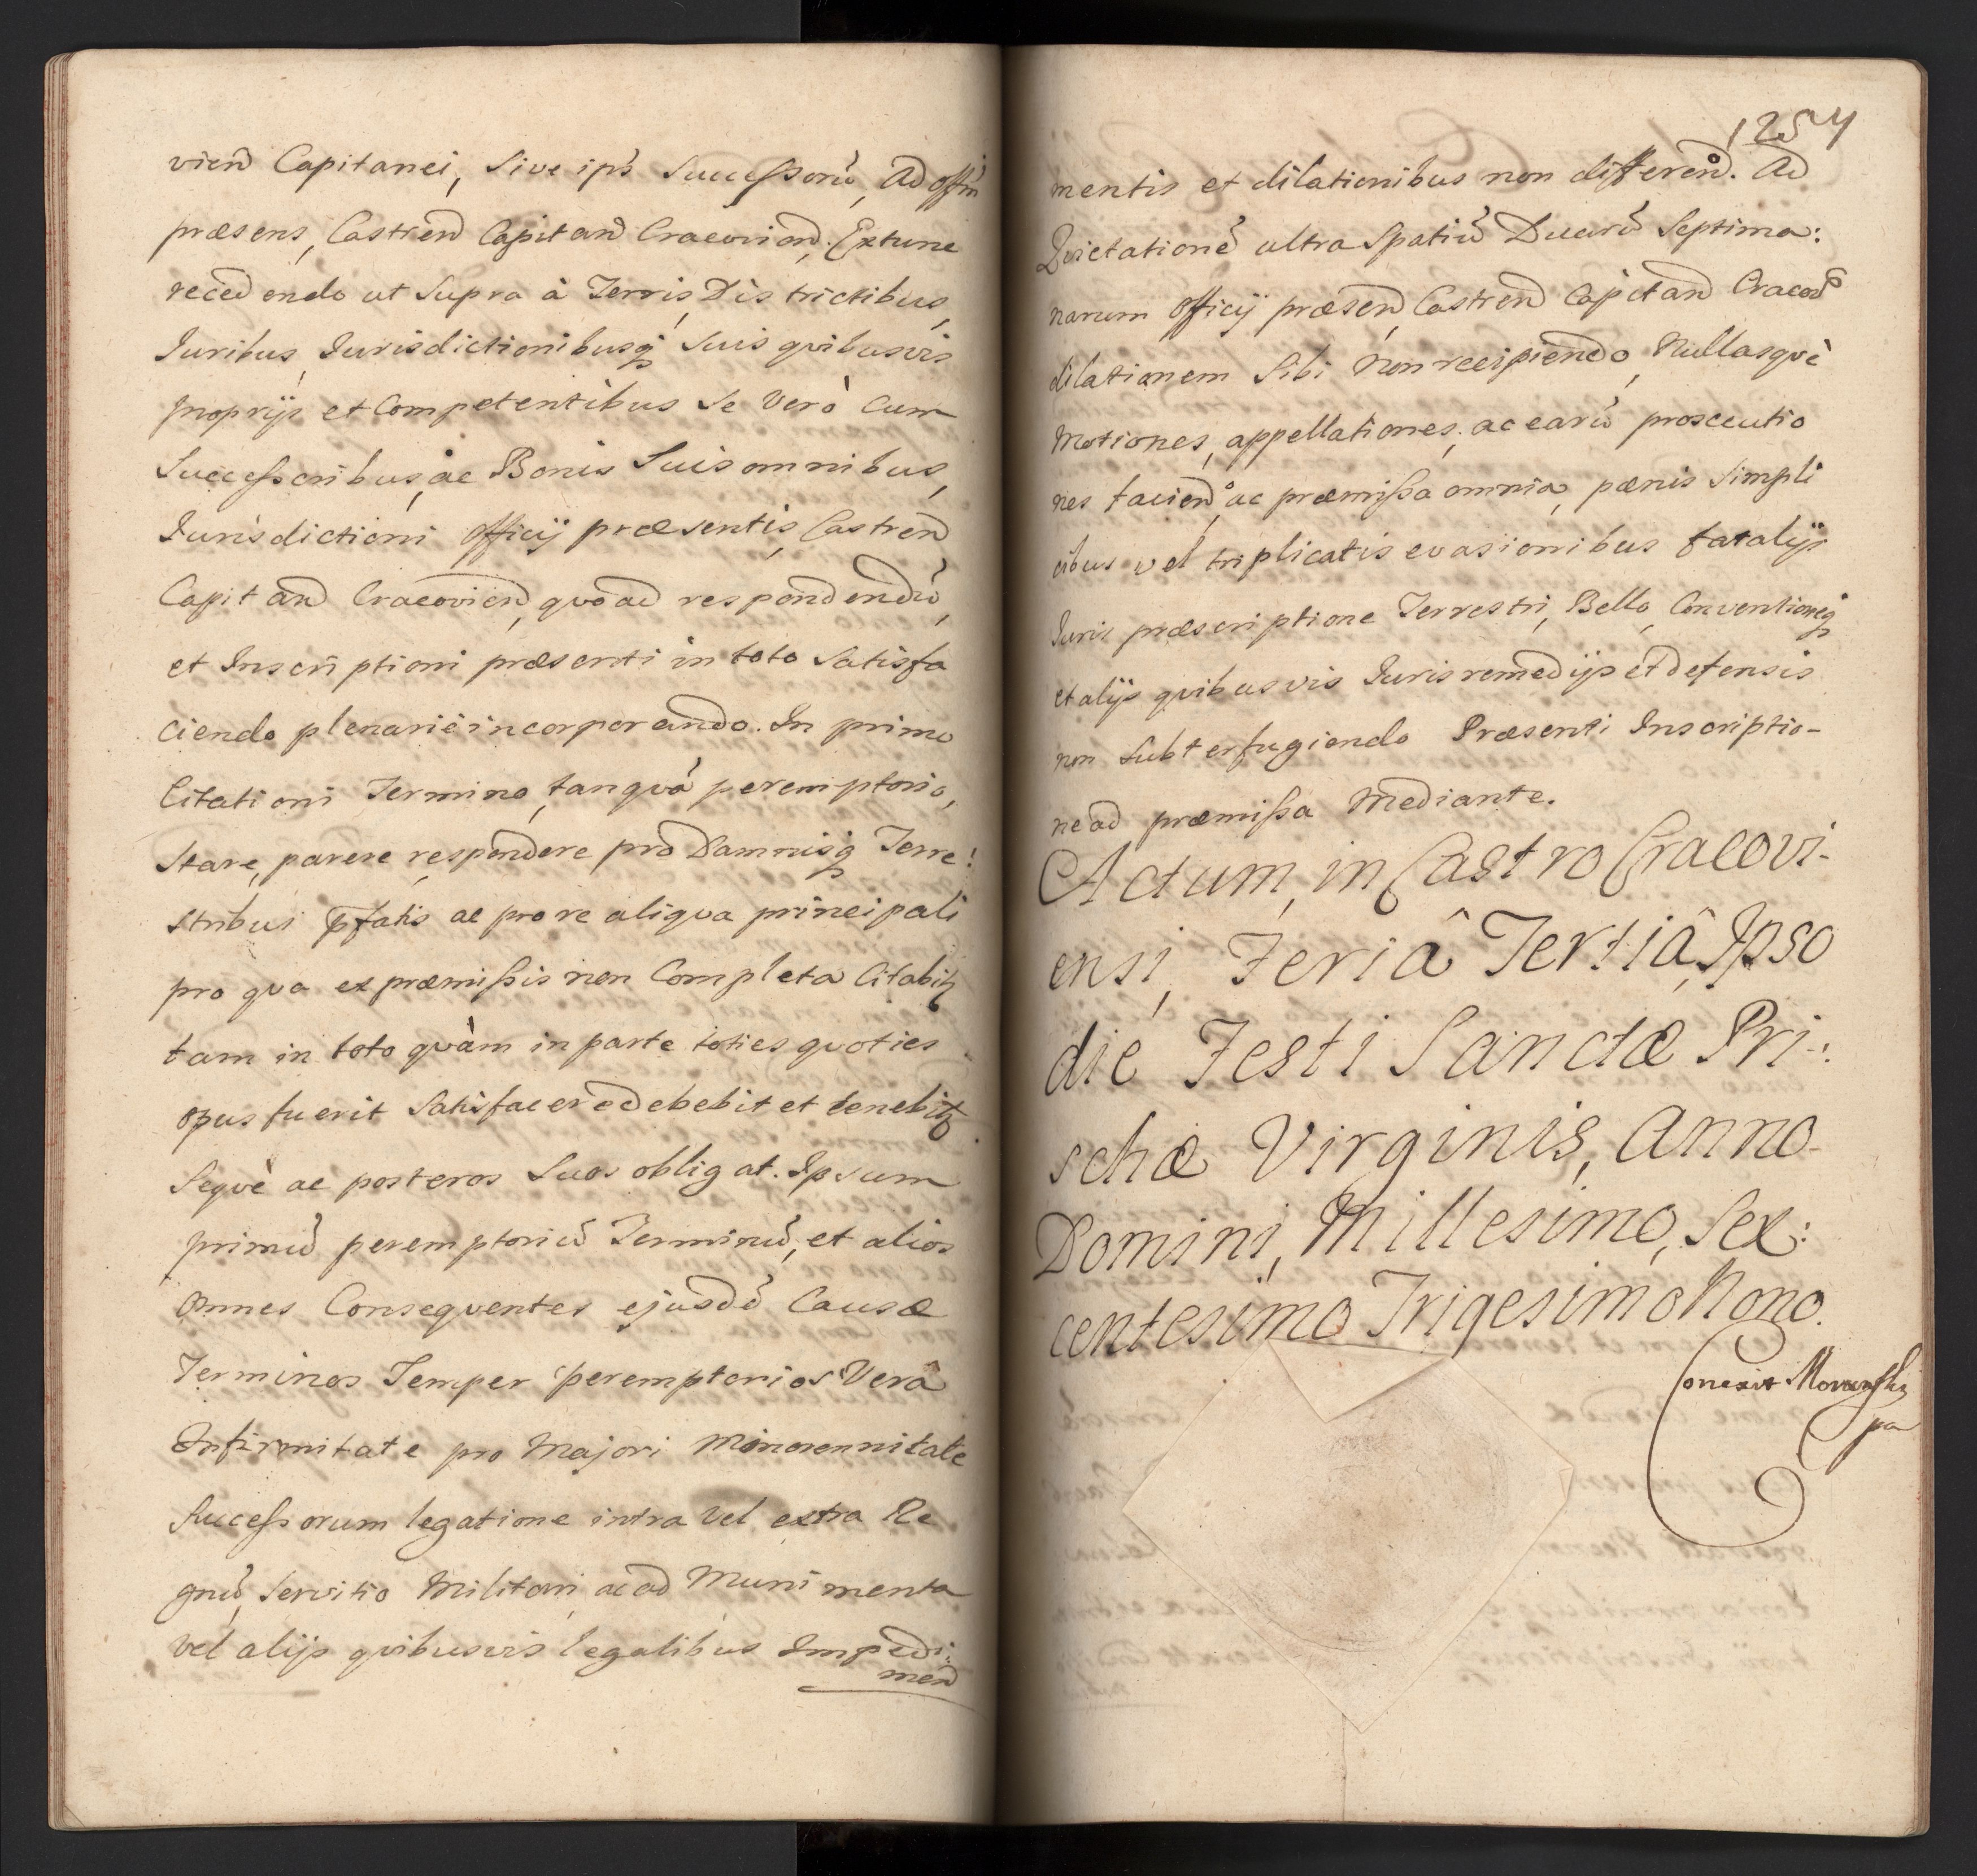 vien̄ Capitanei, Sive ips̀ Successorū, Ad offm̄
præsens, Castren̄ Capitan̄ Cracovien̄. Extunc
recedendo ut Supra à Terris, Districtibus,
Juribus, Jurisdictionibusq́ Suis qvibusvis
proprijs et Competentibus Se Verò cum
Successoribus, ac Bonis Suis omnibus,
Jurisdictioni officij præsentis, Castren̄
Capitan̄ Cracovien̄, qvo ad respondendū,
et Inscriptioni præsenti in toto Satisfa
ciendo plenariè incorporando. In primo
Citationi Termino, tanqvā peremptorio,
Stare, parere respondere pro Damnisq́ Terre:
stribus p̄fatis ac pro re aliqva principali
pro qva ex præmissis non Completa Citabitꝛ
tam in toto qvàm in parte toties qvoties
opus fuerit Satisfacere debebit et tenebitꝛ
Seqvè ac posteros Suos obligat. Ipsum
primū peremptoriū Terminū, et alios
omnes Conseqventes ejusdē Causæ
Terminos Semper peremptorios Verâ
Infirmitate pro Majori Minorennitate
Successorum legatione intra vel extra Re
gnū, Servitio Militari ac ad Munimenta
vel alijs qvibusvis legalibus Impedi:
men̄
1254
mentis et dilationibus non differen̄. Ad
Qvietationē ultra Spatiū Duarū Septima:
narum officij præsen̄ Castren̄ Capitan̄ Cracov̄
dilationem Sibi Non recipiendo, Nullasqvè
Motiones, appellationes, ac earū prosecutio
nes facien̄, ac præmissa omnia, pænis Simpli
cibus vel triplicatis evasionibus fatalijs
Juris præscriptione Terrestri, Bello, Conventioneq́
et alijs qvibusvis Juris remedijs et defensis
non Subterfugiendo Præsenti Inscriptio-
ne ad præmissa Mediante.
Actum, in Castro Cracovi-
ensi, Feriâ Tertiâ, Ipso
die Festi Sanctæ Pri-:
schæ Virginis, Anno
Domini, Millesimo, Sex:
centesimo Trigesimo Nono.
Conexit Moranski
pa